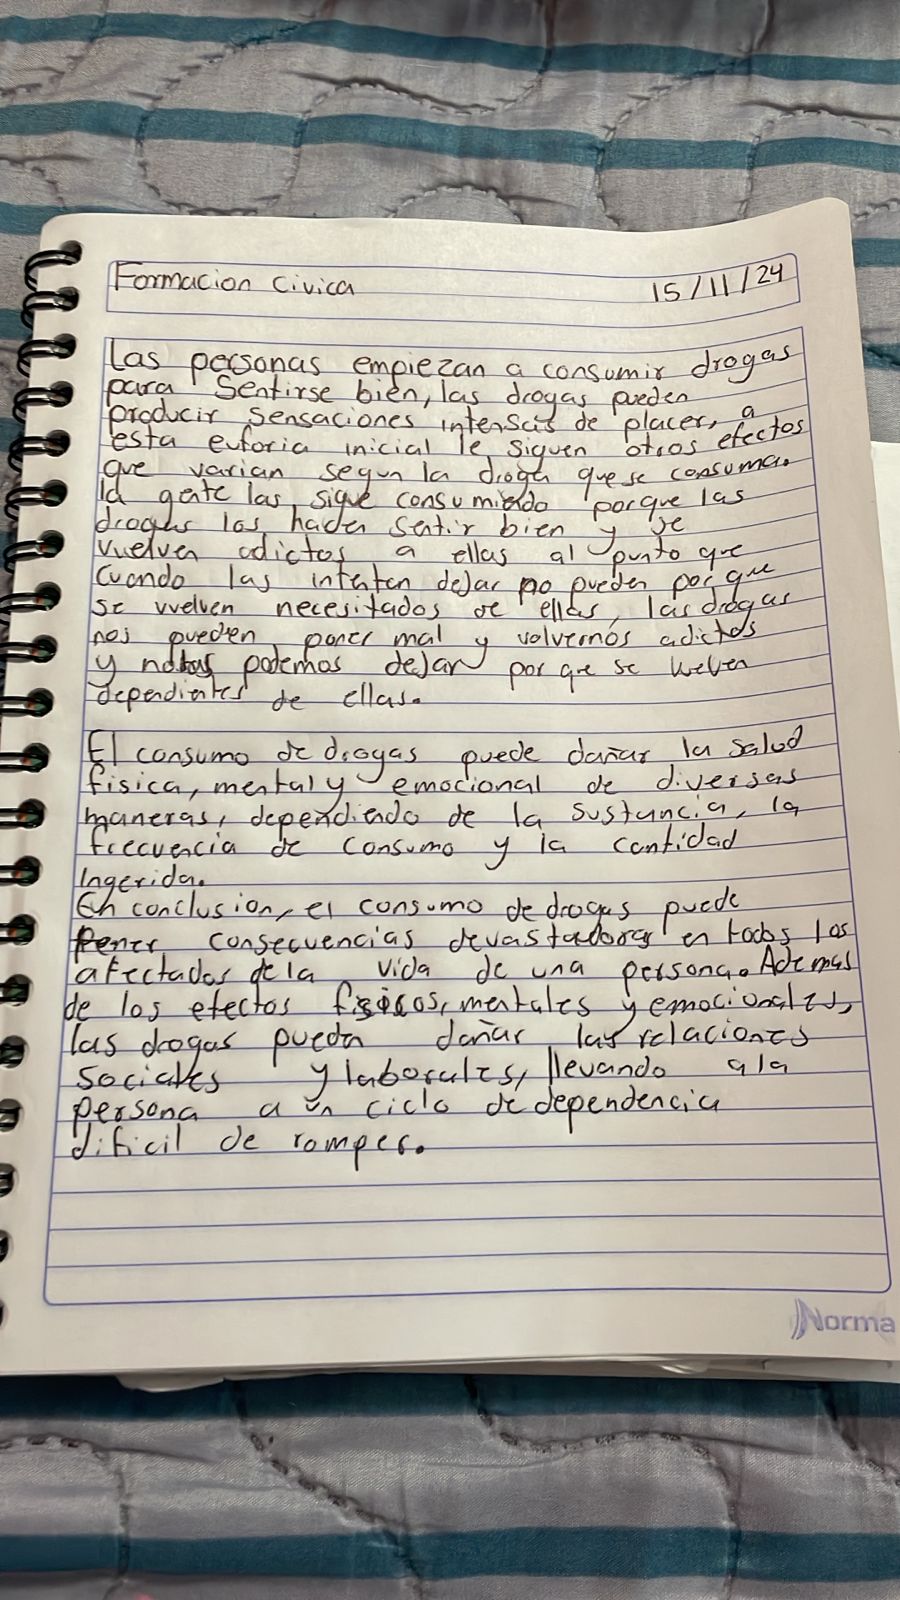 Formacion Civica
15/11/24
Las personas empiezan a consumir drogas
para Sentirse bien, las drogas pueden
producir sensaciones intensas de placer, a
esta euforia inicial le siguen otros efectos
que varian segun la droga que se consuma.
la gente las sigue consumiendo porque las
drogas los hacen sentir bien y se
vuelven adictos a ellas al punto que
cuando las intentan dejar no pueden por que
se vuelven necesitados de ellas, las drogas
nos pueden poner mal y volvernos adictos
y no las podemos dejar por que se vuelven
dependientes de ellas.
El consumo de drogas puede dañar la salud
fisica, mental y emocional de diversas
maneras, dependiendo de la sustancia, la
frecuencia de consumo y la cantidad
Ingerida.
En conclusion, el consumo de drogas puede
tener consecuencias devastadoras en todos los
afectados de la vida de una persona. Ademas
de los efectos fisicos, mentales y emocionales,
las drogas pueden dañar las relaciones
sociales y laborales, llevando a la
persona a un ciclo de dependencia
dificil de romper.
Norma